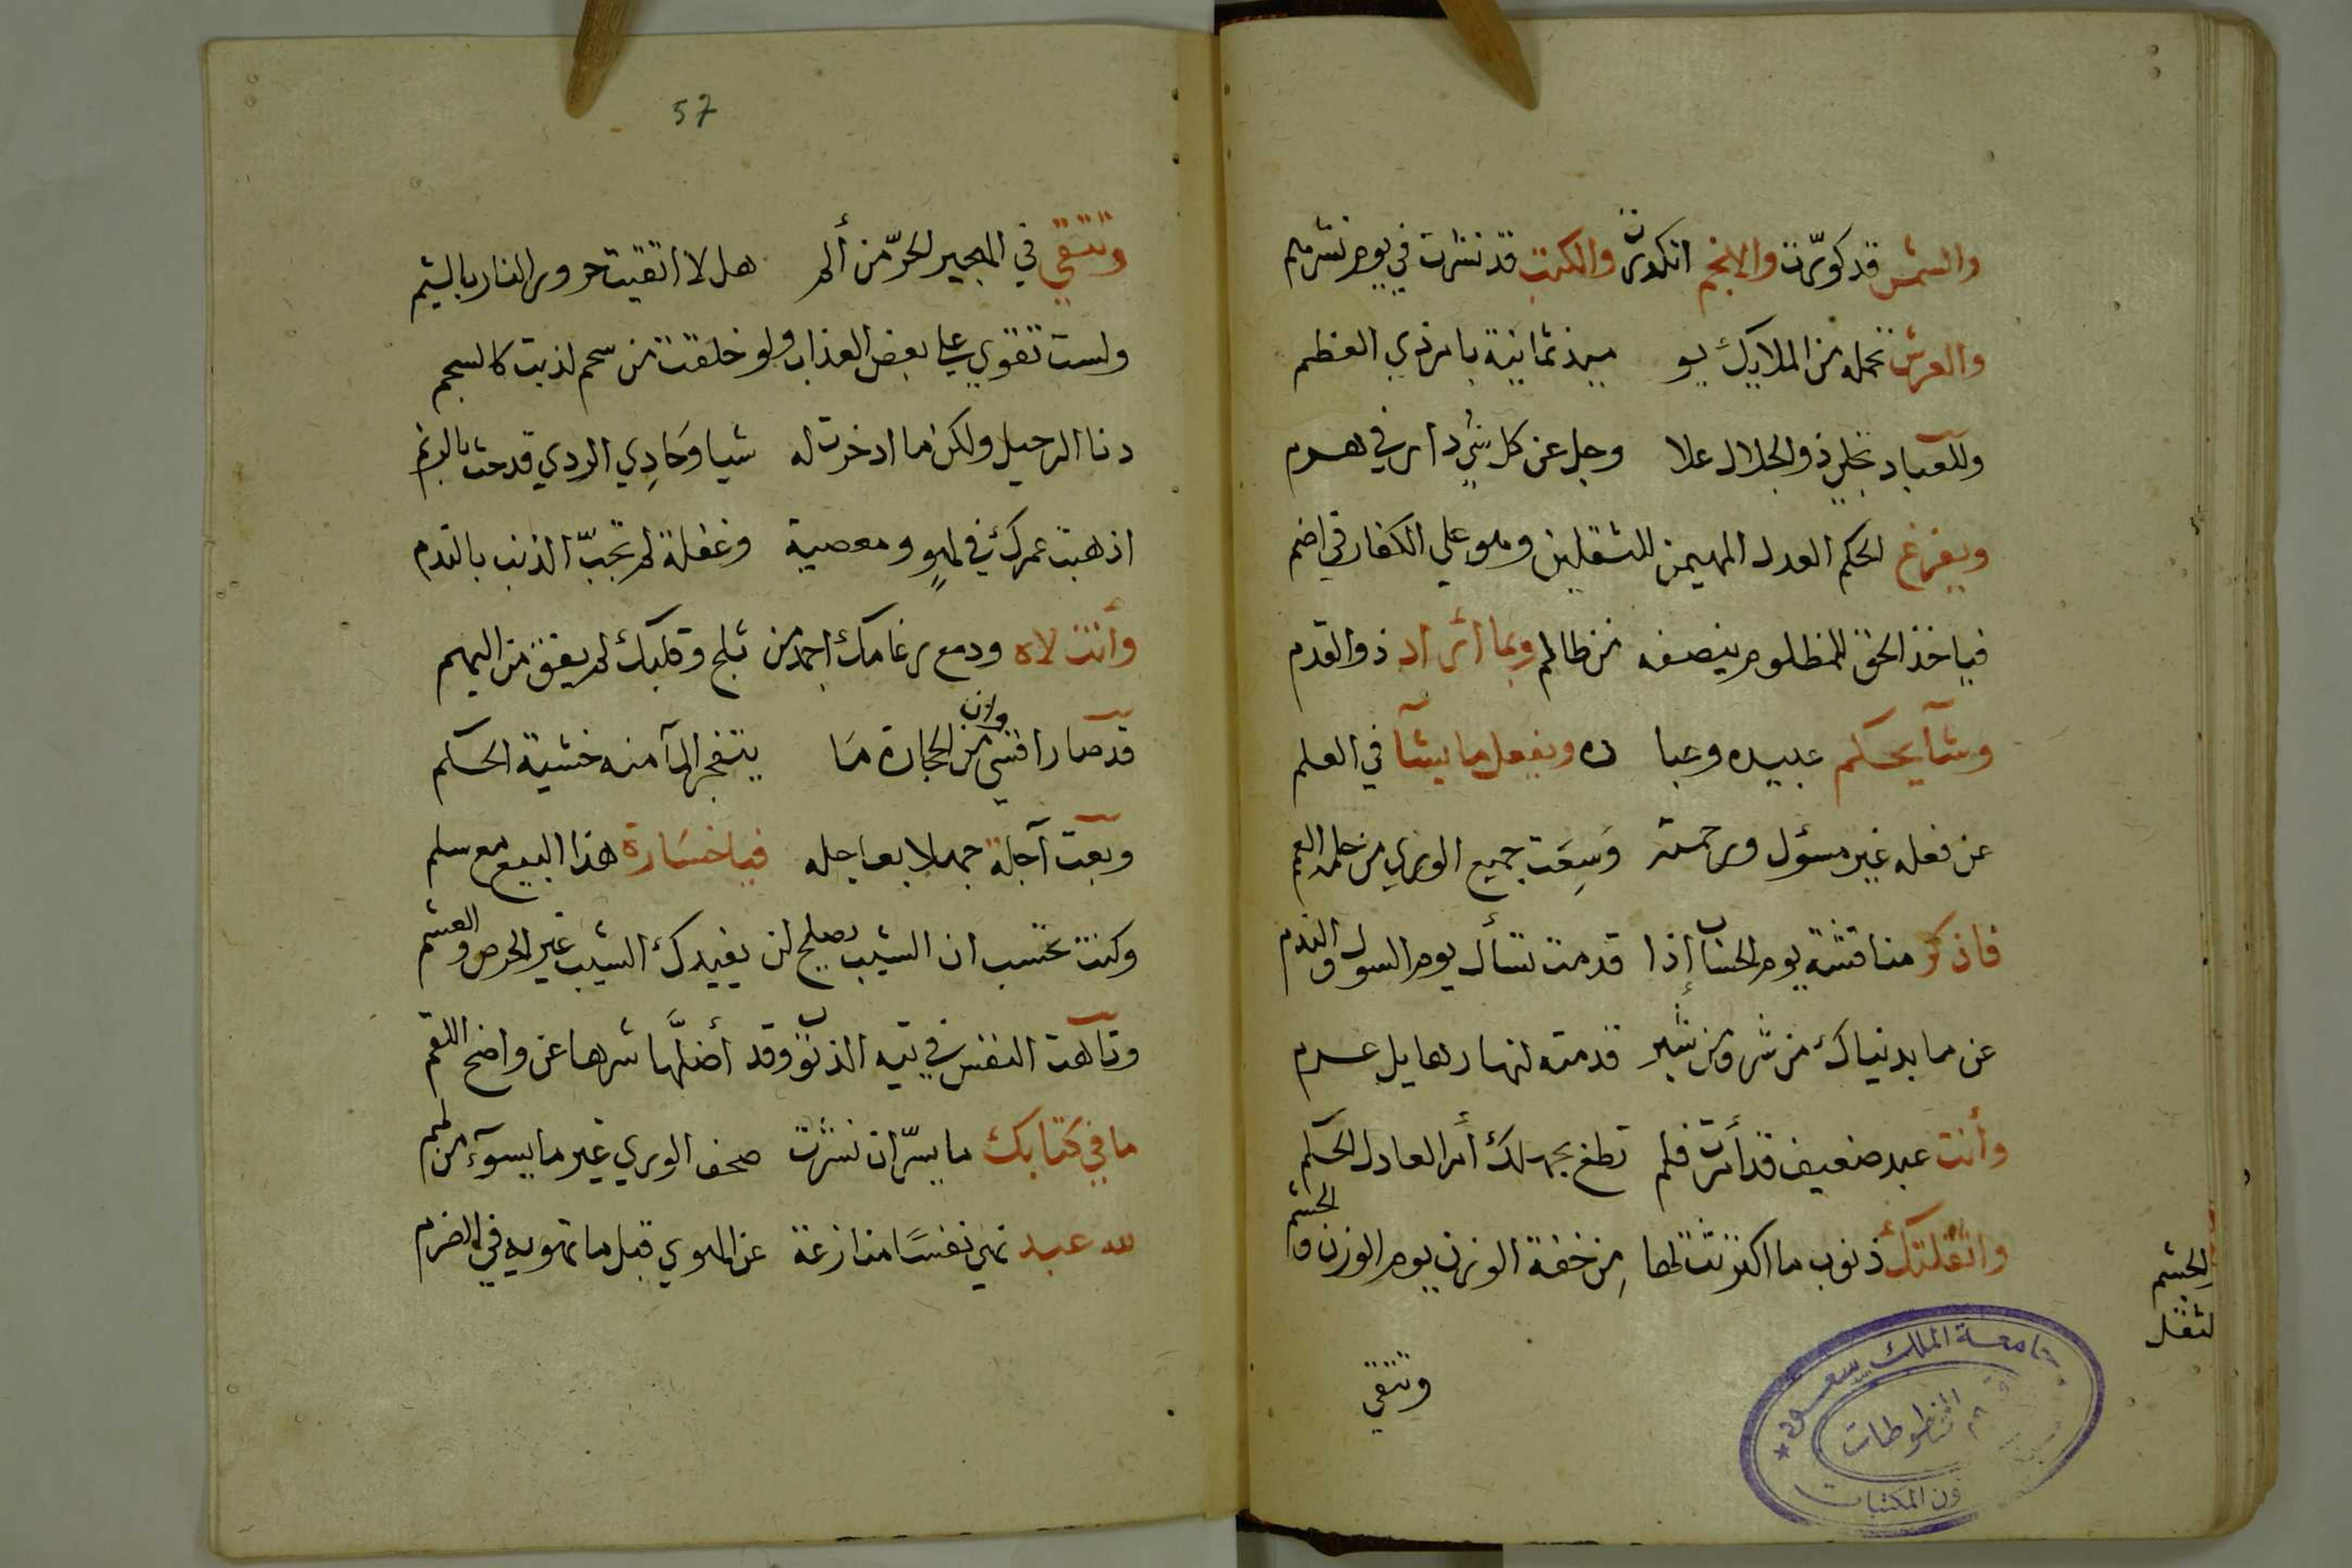 والشمس قد كورت والانجم انكدرت والكتب قد نشرت في يوم نشرهم
والعرش تحمله من الملايك يو ميذ ثمانية بامر ذي العظم
وللعباد تجلي ذو الجلال علا وجل عن كل شي دار في
ويفرغ الحكم العدل المهيمن للثقلين وهو علي الكفار في اضم
فياخذ الحق للمظلوم ينصفه من ظالم وبما اراد ذو القدم
وشآ يحكم عبيده وعبا ده ويفعل ما يشآ في العلم
عن فعله غير مسؤل ورحمته وَسِعَت جميع الوري من حلمه العمم
فاذكر مناقشة يوم الحساب إذا قدمت تسأل يوم السول والندم
عن ما بدنياك من شر ومن قدمته
وأنت عبد ضعيف قد أمرت فلم تطع بجهلك أمر العادل الحكم
واثقلتك ذنوب ما اكترثت لها مِن خفة الوزن يوم الوزن والحشم
الحشم
لثقل
وتتقي
جامعة الملك سعود
قسم المخطوطات
شؤون المكتبات
57
وتتقي في الهجير الحرّ من ألم هل لا اتقيت حرور النار بالشيم
ولست تقوي علي بعض العذاب ولو خلقت من سحم لذبت كالسحم
دنا الرحيل ولكن ما ادخرت له شيا وَحَادِي الردي قد حث بالرنم
اذهبت عمرك في لهوٍ ومعصية وغفلة لم تجبّ الذنب بالندم
وأنت لاه ودمع من ثلج وقلبك لم يفق من البهم
قد صار اقسي من الحجارة مَا وان يتفجر المآ منه خشية الحكم
وبعت آجلة جهلا بعاجله فيا خسَارة هذا البيع مع سلم
وكنت تحسب ان الشيب يصلح لن يفيدك الشيب غير الحرص والعشم
وتاهت النفس في تيه الذنوب وقد أضلَّها شرها عن واضح اللقم
ما في كتابك ما يسرّ ان نشرت صحف الوري غير ما يسوء من لمم
لله عبد نهي نفسًا منازعة عن الهوي قبل ما تهويه في الضرم